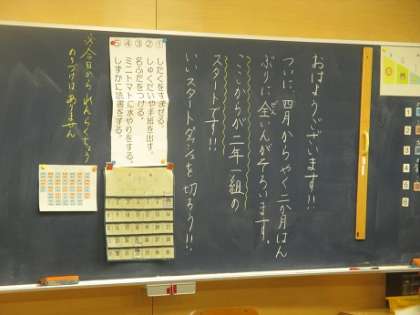 おはようございます!!
ついに、四月からやく二か月はん
ぶりに全いんがそろいます。
ここからが二年一組の
スタートです!!
いいスタートダッシュを切ろう!!
①したくをすませる。
②しゅくだいや手紙を出す。
③名ふだをつける。
④ミニトマトに水やりをする。
⑤しずかに読書をする。
※今日から れんらくちょう
のうづけはありません